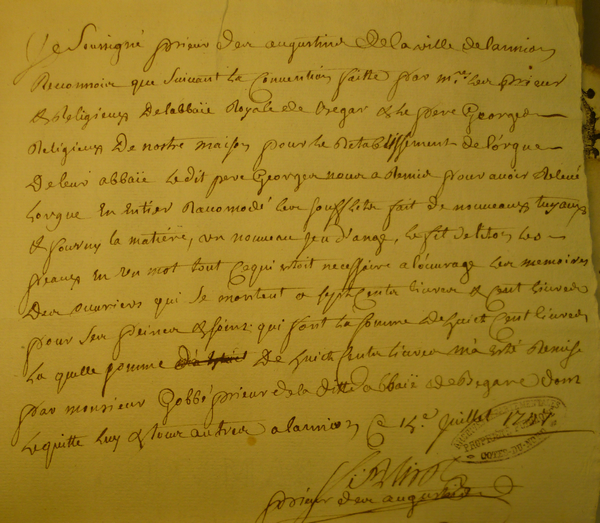 Je Soussigné prieur des augustins de la ville de lannion
Reconnois que suivant la Convention faitte par mrs les prieur
& Religieux de labbaïe Royale de Begar & le pere Georges
Religieux de nostre maison pour le Retablissement de l'orgue
de leur abbaïe le dit pere Georges nous a Remis pour avoir Relevé
Lorgue En Entier Racomodé les soufflets fait de nouveaux tuyaux
& fourny la matière, un nouveau jeu d'ange,
En un mot tout Cequi estoit necessaire a l'ouvrage les memoires
des ouvriers qui se montent a sept Cents livres & Cent livres
pour ses peines & soins qui font la somme de huict Cent livres
la quelle somme De huict Cents livres m'a esté Remise
par monsieur prieur de la ditte abbaïe de Begare dont
Je quitte luy & tous autres a lannion Ce juillet 1747.
prieur des augustins